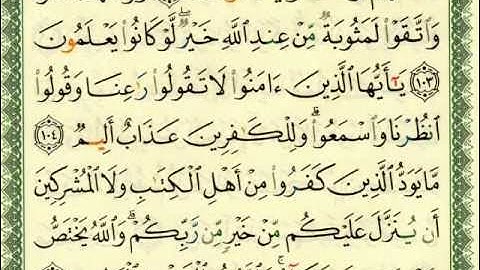 وَاتَّقَوْا لَمَثُوبَةٌ مِّنْ عِندِ اللَّهِ خَيْرٌ ۖ لَّوْ كَانُوا يَعْلَمُونَ
١٠٣ يَٰٓأَيُّهَا الَّذِينَ ءَامَنُوا لَا تَقُولُوا رَٰعِنَا وَقُولُوا
انظُرْنَا وَاسْمَعُوا ۗ وَلِلْكَٰفِرِينَ عَذَابٌ أَلِيمٌ ١٠٤
مَّا يَوَدُّ الَّذِينَ كَفَرُوا مِنْ أَهْلِ الْكِتَٰبِ وَلَا الْمُشْرِكِينَ
أَن يُنَزَّلَ عَلَيْكُم مِّنْ خَيْرٍ مِّن رَّبِّكُمْ ۗ وَاللَّهُ يَخْتَصُّ